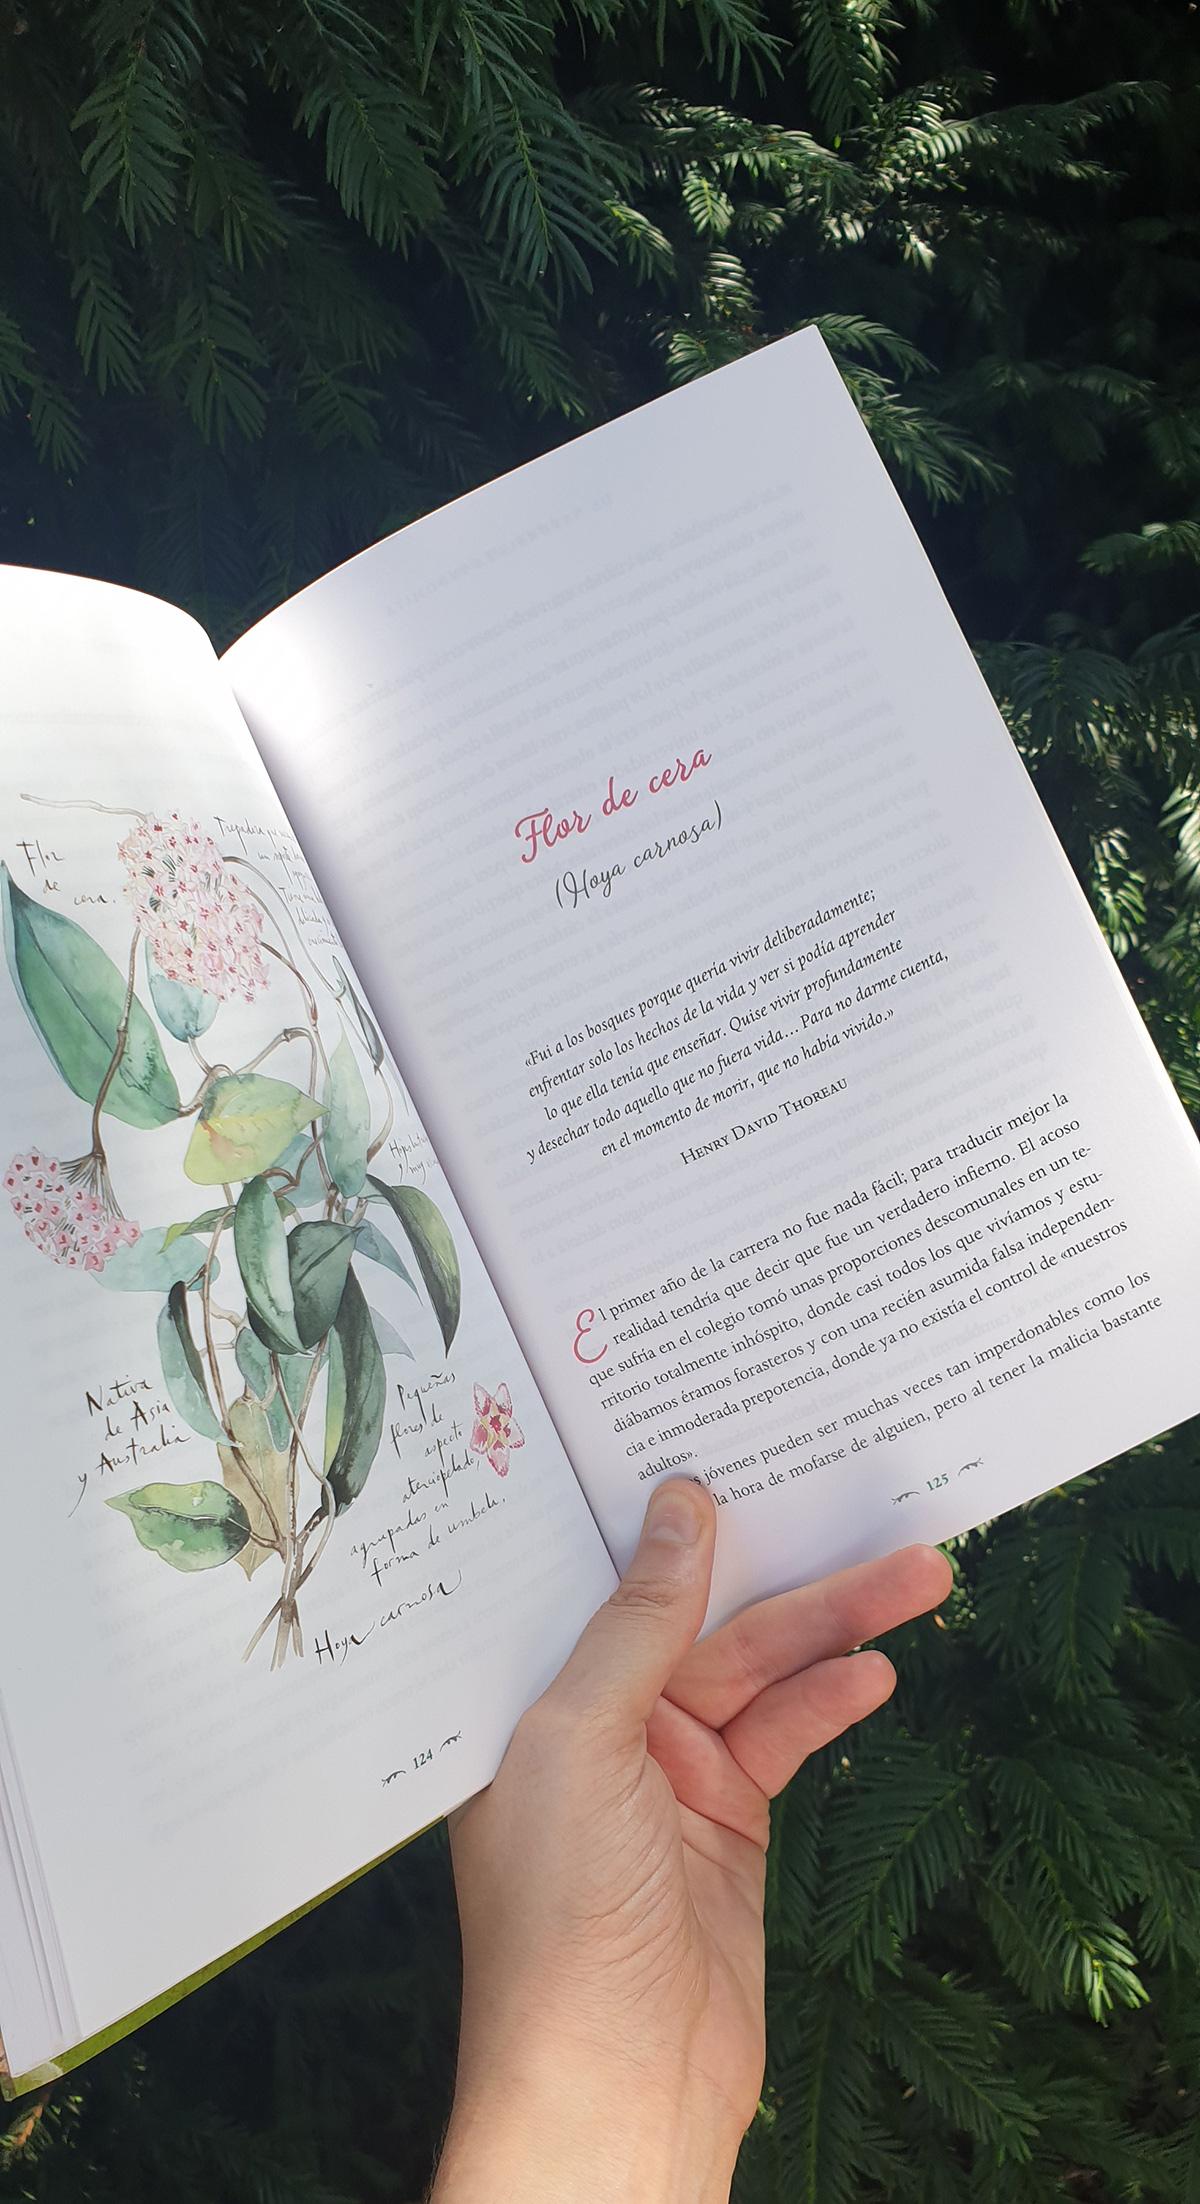 Flor
de
cera.
Trepadora
Nativa
de Asia
y Australia
Pequeñas
flores de
aspecto
aterciopelado,
agrupadas en
forma de umbela.
Hoya carnosa
124
Flor de cera
(Hoya carnosa)
«Fui a los bosques porque quería vivir deliberadamente;
enfrentar solo los hechos de la vida y ver si podía aprender
lo que ella tenía que enseñar. Quise vivir profundamente
y desechar todo aquello que no fuera vida... Para no darme cuenta,
en el momento de morir, que no había vivido.»
Henry David Thoreau
El primer año de la carrera no fue nada fácil; para traducir mejor la
realidad tendría que decir que fue un verdadero infierno. El acoso
que sufría en el colegio tomó unas proporciones descomunales en un te-
rritorio totalmente inhóspito, donde casi todos los que vivíamos y estu-
diábamos éramos forasteros y con una recién asumida falsa independen-
cia e inmoderada prepotencia, donde ya no existía el control de «nuestros
adultos».
jóvenes pueden ser muchas veces tan imperdonables como los
la hora de mofarse de alguien, pero al tener la malicia bastante
125